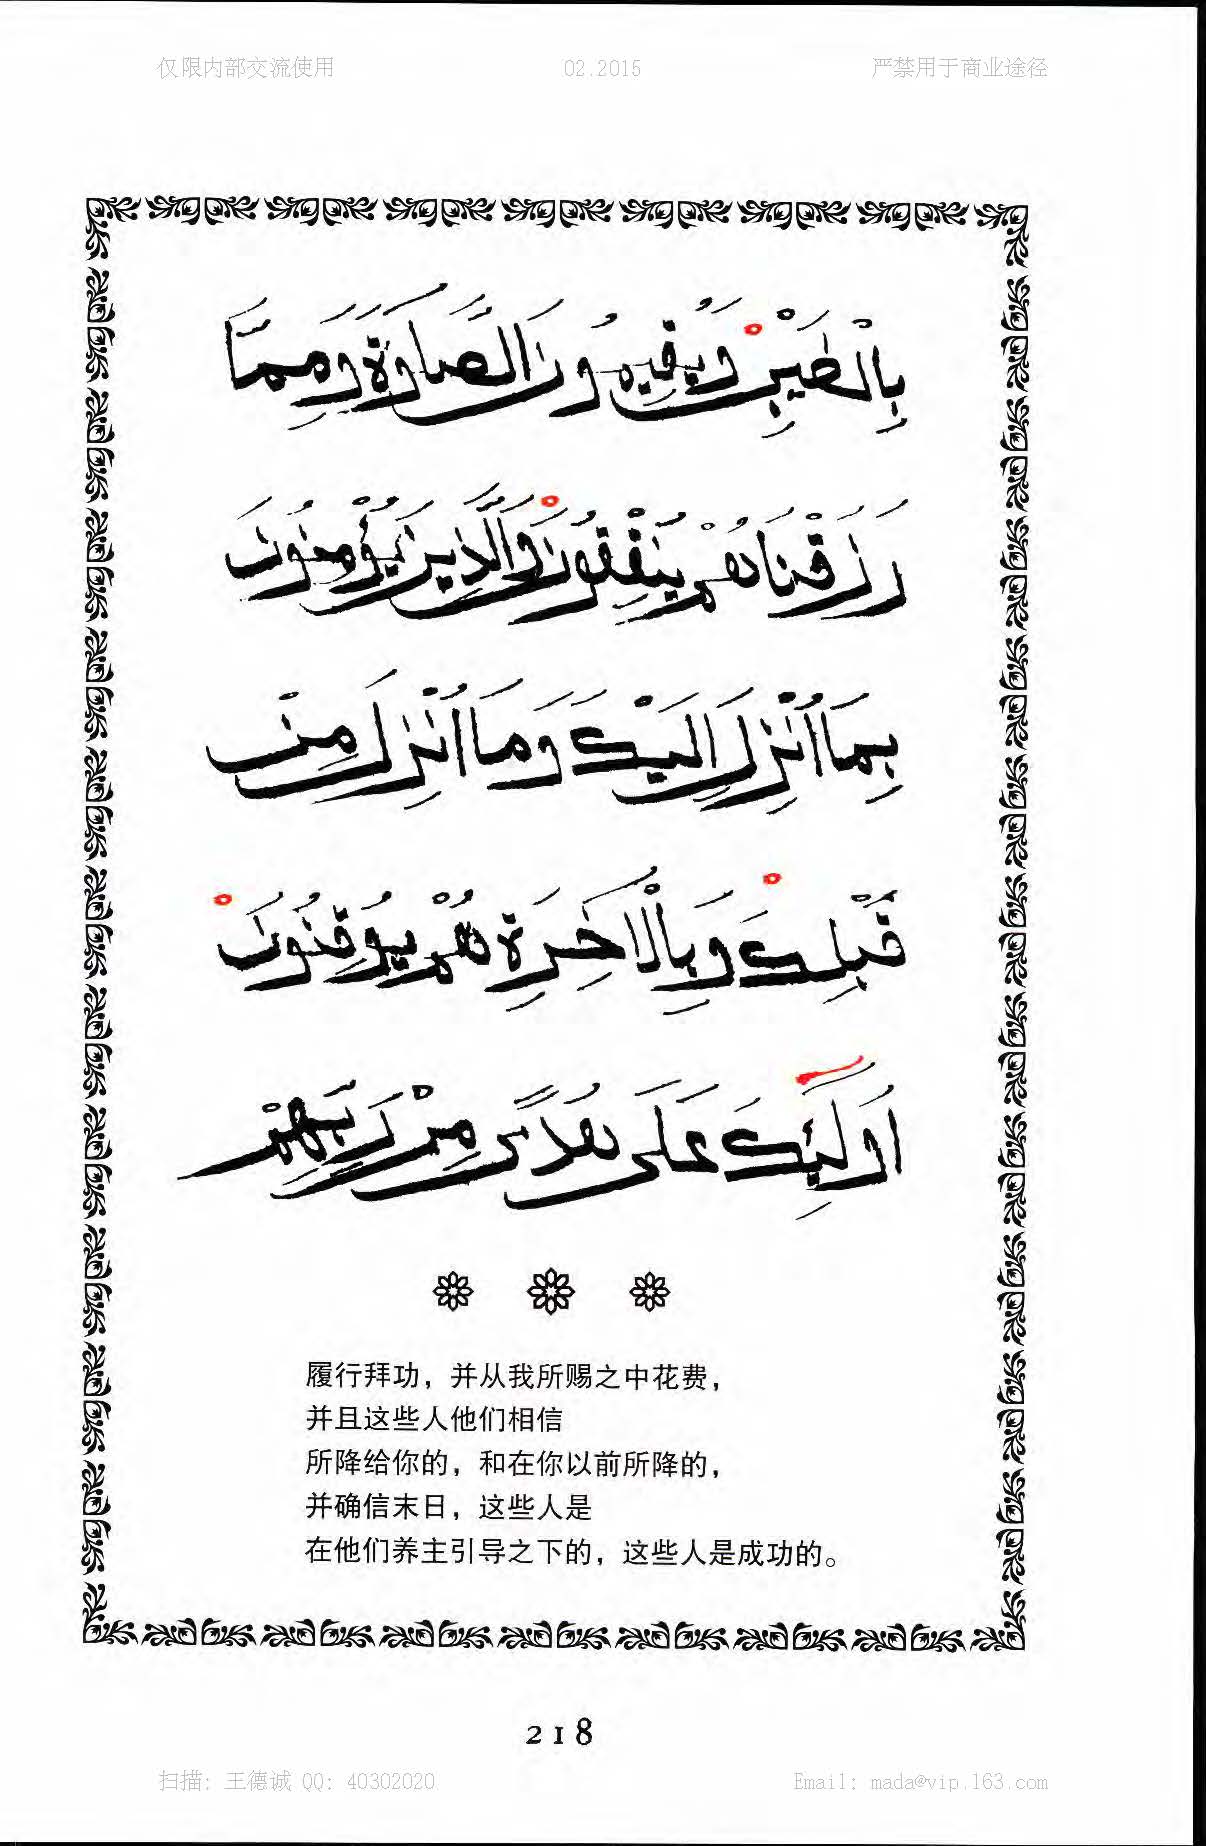 仅限内部交流使用 02.2015 严禁用于商业途径
بِالْغَيْبِ وَيُقِيمُونَ الصَّلَوةَ وَمِمَّا
رَزَقْنَاهُمْ يُنْفِقُونَ وَالَّذِينَ يُؤْمِنُونَ
بِمَا اُنْزِلَ اِلَيْكَ وَمَا اُنْزِلَ مِنْ
قَبْلِكَ وَبِالْاٰخِرَةِ هُمْ يُوقِنُونَ
اُولَئِكَ عَلَى هُدًى مِنْ رَبِّهِمْ
履行拜功，并从我所赐之中花费，
并且这些人他们相信
所降给你的，和在你以前所降的，
并确信末日，这些人是
在他们养主引导之下的，这些人是成功的。
218
扫描: 王德诚 QQ: 40302020 Email: mada@vip.163.com